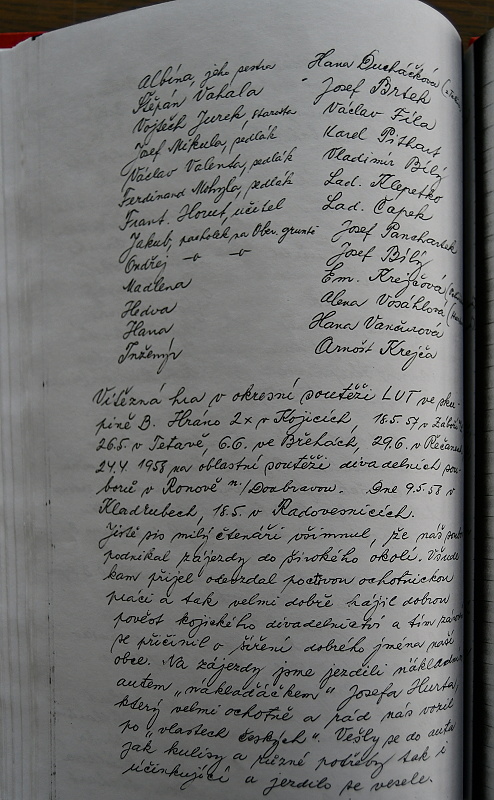 Albína, jeho sestra Hana Ducháčková
Štěpán Vahala Josef Brtek
Vojtěch Jurek, starosta Václav Fila
Josef Mikula, pedlák Karel Pithart
Václav Valenta, pedlák Vladimír Bílý
Ferdinand Mohyla, pedlák Lad. Klepetko
Frant. Horut, učitel Lad. Čapek
Jakub, pacholek na Ober. gruntě Josef Panchartek
Ondřej -o- -o- Josef Bílý
Madlena Em. Krejčová
Hedva Alena Vosáhlová
Hana Hana Vančurová
Inženýr Arnošt Krejča
Vítězná hra v okresní soutěži LUT ve sku-
pině B. Hráno 2x v Kojicích, 18.5.57 v
26.5 v Tetavě, 6.6. ve Břehách, 29.6. v
24.4 1958 na oblastní soutěži divadelních sou-
borů v Ronově n./Doubravou. Dne 9.5.58 v
Kladrubech, 18.5. v Radovesnicích.
Jistě sis milý čtenáři všimnul, že náš
podnikal zájezdy do širokého okolí. Všude
kam přijel odevzdal poctivou ochotnickou
práci a tak velmi dobře hájil dobrou
pověst kojického divadelnictví a tím
se přičinil o šíření dobrého jména naší
obce. Na zájezdy jsme jezdili
autem "náklaďáčkem" Josefa Hurta,
který velmi ochotně a rád nás vozil
po "vlastech českých". Vešly se do auta
jak kulisy a různé potřeby tak i
účinkující a jezdilo se vesele.